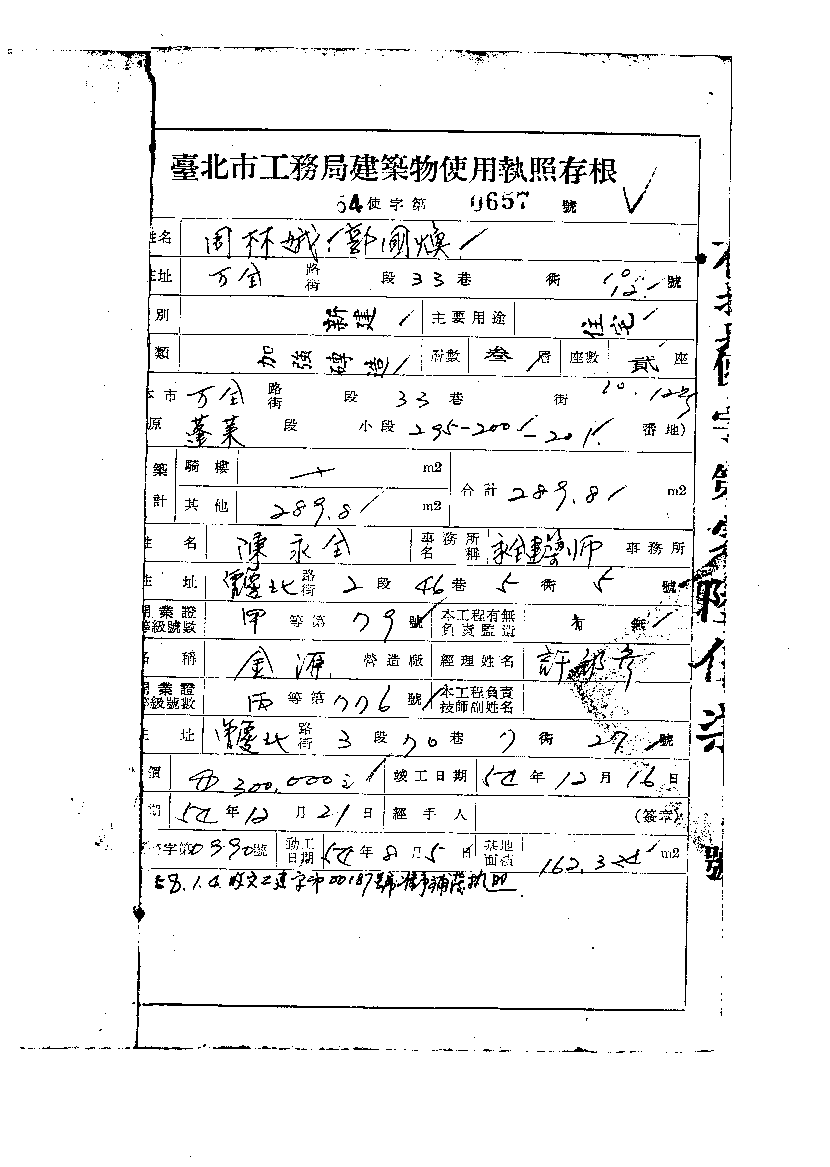 臺北市工務局建築物使用執照存根
54使字第 0657 號
姓名 周林娥 郭國煥
住址 万全 路街 段 33 巷 衖 10 12 號
別 新建 主要用途 住宅
類 加強磚造 層數 叁 層 座數 貳 座
本市 万全 路街 段 33 巷 衖 10.12號
原 蓬萊 段 小段 295-200 -201 番地)
築 騎樓 m2 合計 289.8 m2
計 其他 289.8 m2
姓名 陳永全 事務所名稱 永全建築師 事務所
住址 重慶北 路街 2 段 46 巷 5 衖 5 號
開業證等級號數 甲 等第 79 號 本工程有無負責監造 有 無
名稱 金源 營造廠 經理姓名 許
開業證等級號數 丙 等第 776 號 本工程負責技師副姓名
住址 重慶北 路街 3 段 70 巷 7 衖 27 號
價 300,000 竣工日期 54 年 12 月 16 日
期 54 年 12 月 21 日 經手人 (簽章)
字第0390號 動工日期 54 年 8 月 5 日 基地面積 162.34 m2
58.1.4.收文工建字第00187號准予補發執照
號